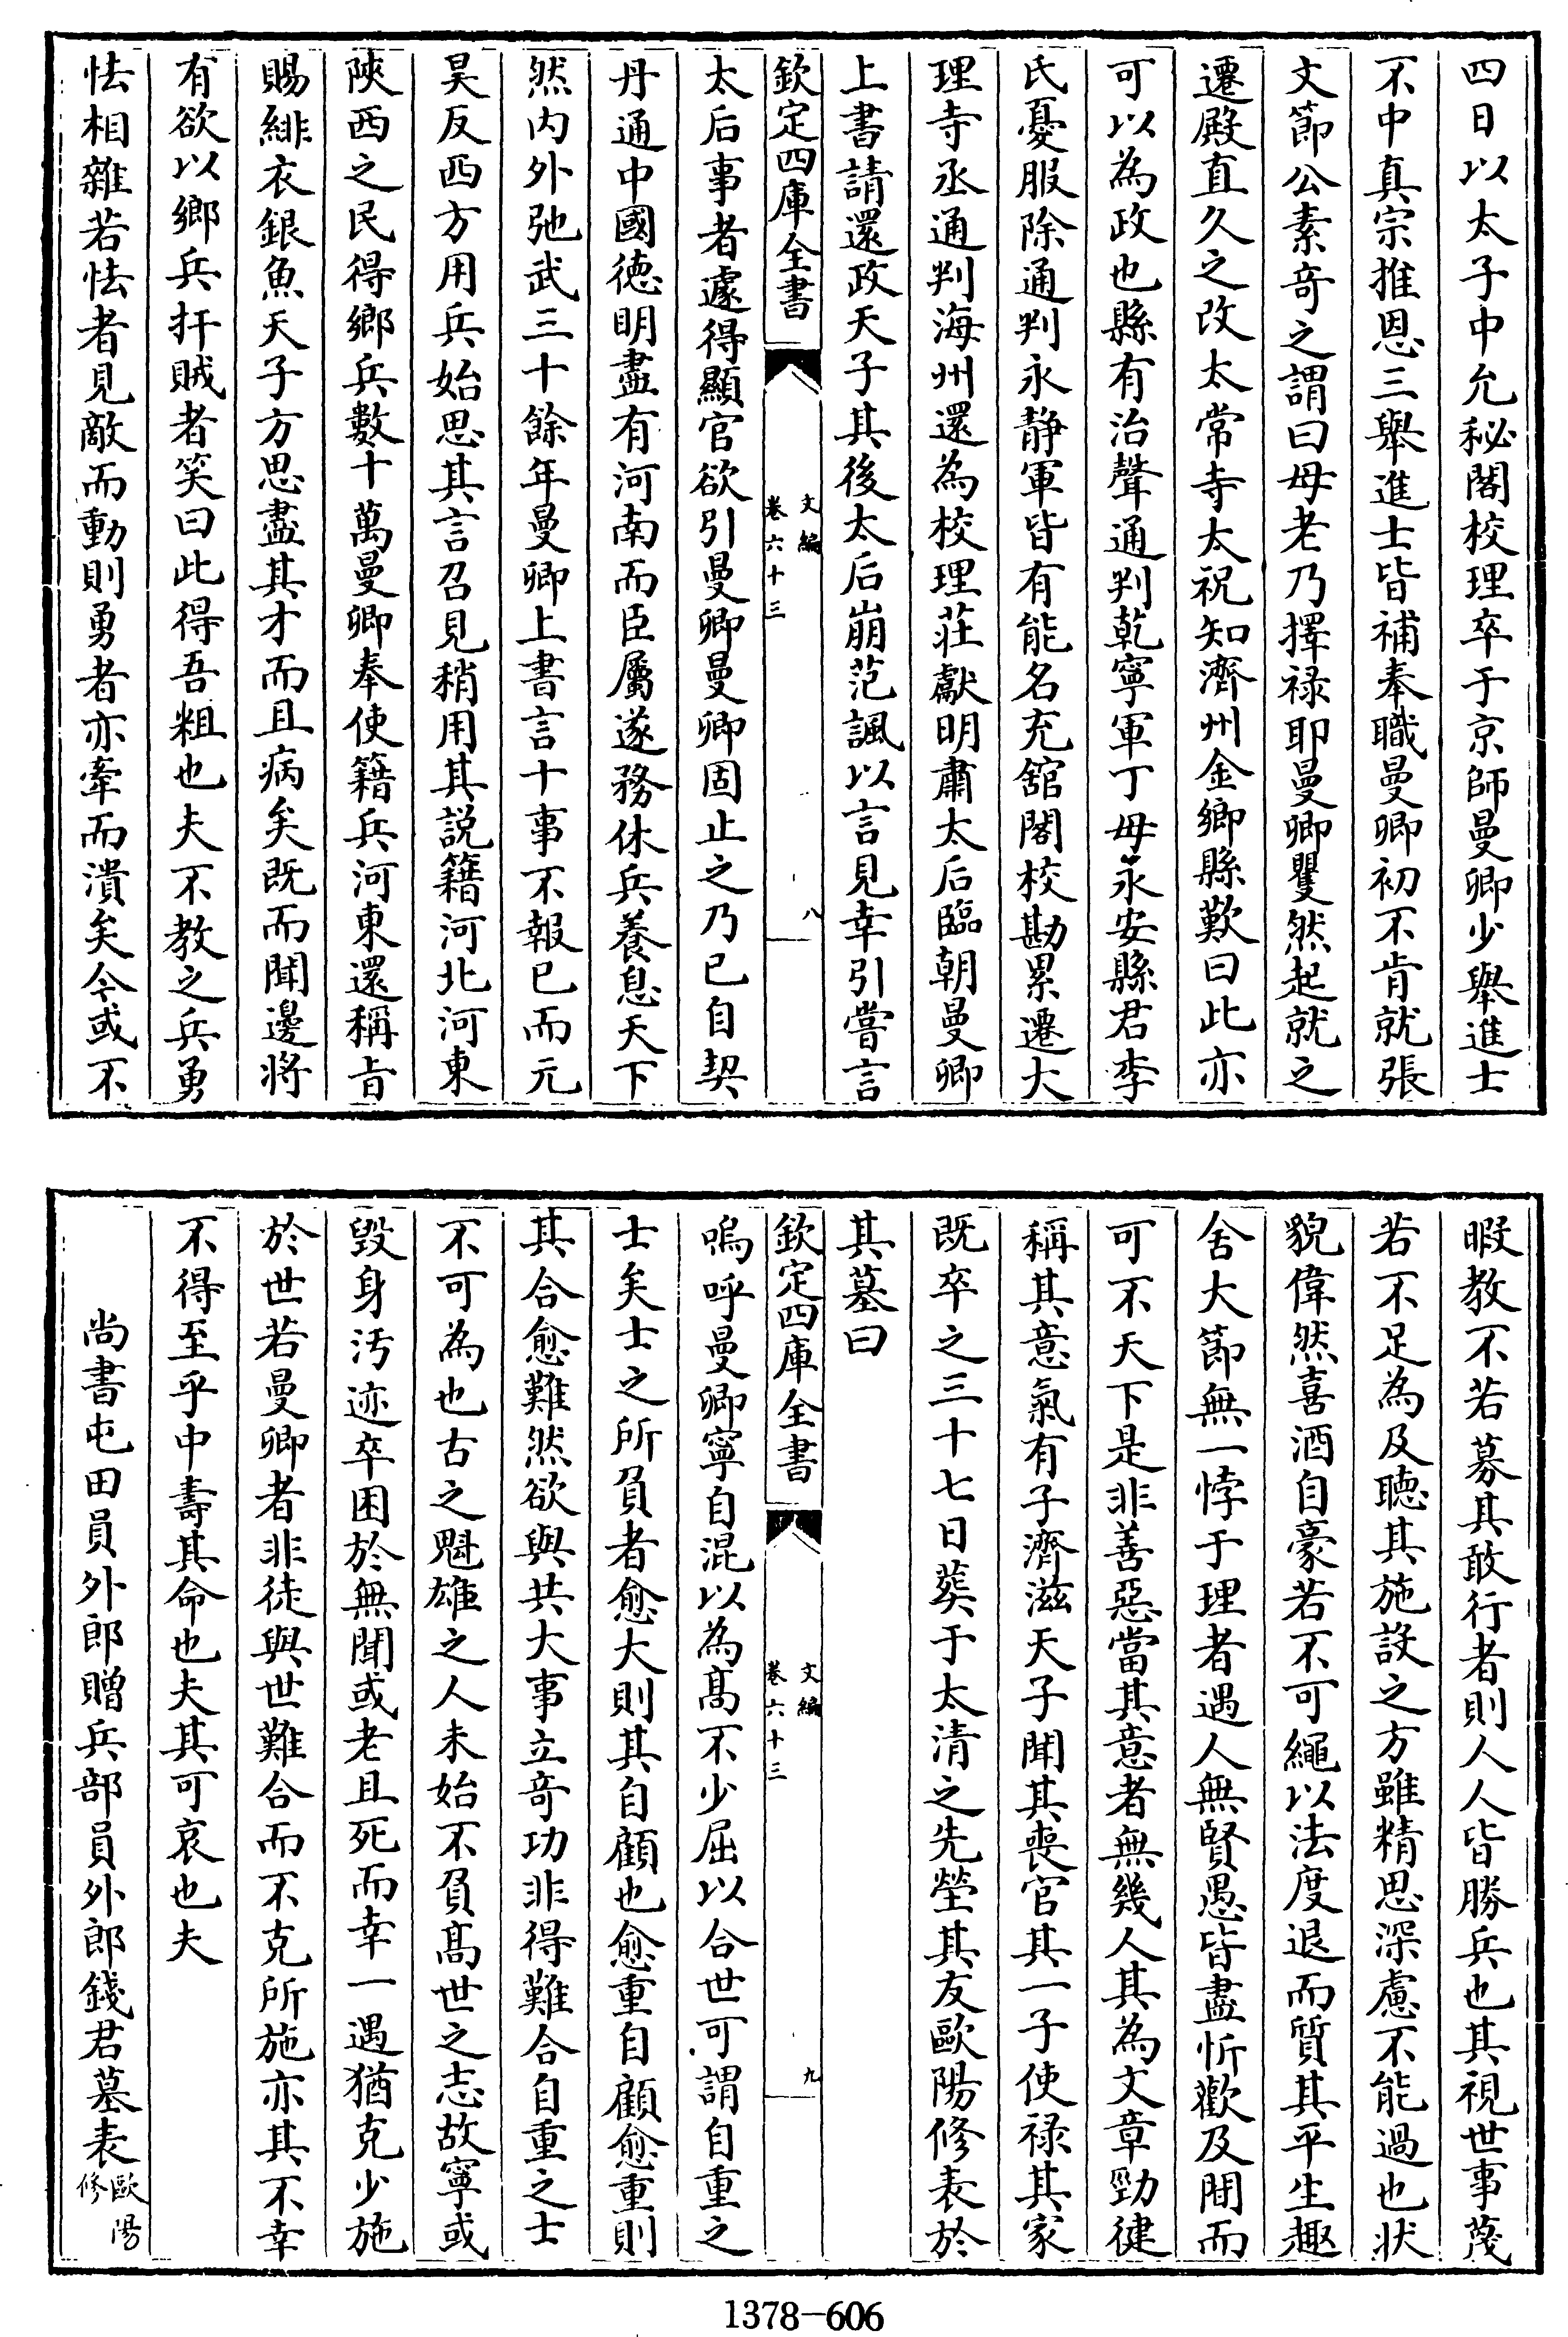 四日以太子中允秘閣校理卒于京師曼卿少舉進士
不中真宗推恩三舉進士皆補奉職曼卿初不肯就張
文節公素奇之謂曰母老乃擇禄耶曼卿矍然起就之
遷殿直久之改太常寺太祝知濟州金鄉縣歎曰此亦
可以為政也縣有治聲通判乾寧軍丁母永安縣君李
氏憂服除通判永静軍皆有能名充舘閣校勘累遷大
理寺丞通判海州還為校理莊獻明肅太后臨朝曼卿
上書請還政天子其後太后崩范諷以言見幸引嘗言
欽定四庫全書
文編
卷六十三
八
太后事者遽得顯官欲引曼卿曼卿固止之乃已自契
丹通中國德明盡有河南而臣屬遂務休兵養息天下
然内外弛武三十餘年曼卿上書言十事不報已而元
昊反西方用兵始思其言召見稍用其説籍河北河東
陜西之民得鄉兵數十萬曼卿奉使籍兵河東還稱旨
賜緋衣銀魚天子方思盡其才而且病矣既而聞邊將
有欲以鄉兵扞賊者笑曰此得吾粗也夫不教之兵勇
怯相雜若怯者見敵而動則勇者亦牽而潰矣今或不
暇教不若募其敢行者則人人皆勝兵也其視世事蔑
若不足為及聽其施設之方雖精思深慮不能過也狀
貌偉然喜酒自豪若不可繩以法度退而質其平生趣
舍大節無一悖于理者遇人無賢愚皆盡忻歡及閒而
可不天下是非善惡當其意者無幾人其為文章勁徤
稱其意氣有子濟滋天子聞其喪官其一子使禄其家
既卒之三十七日葬于太清之先塋其友歐陽修表於
其墓曰
欽定四庫全書
文編
卷六十三
九
嗚呼曼卿寧自混以為髙不少屈以合世可謂自重之
士矣士之所負者愈大則其自顧也愈重自顧愈重則
其合愈難然欲與共大事立奇功非得難合自重之士
不可為也古之魁雄之人未始不負髙世之志故寧或
毀身汚迹卒困於無聞或老且死而幸一遇猶克少施
於世若曼卿者非徒與世難合而不克所施亦其不幸
不得至乎中壽其命也夫其可哀也夫
尚書屯田員外郎贈兵部員外郎錢君墓表歐陽修
1378-606